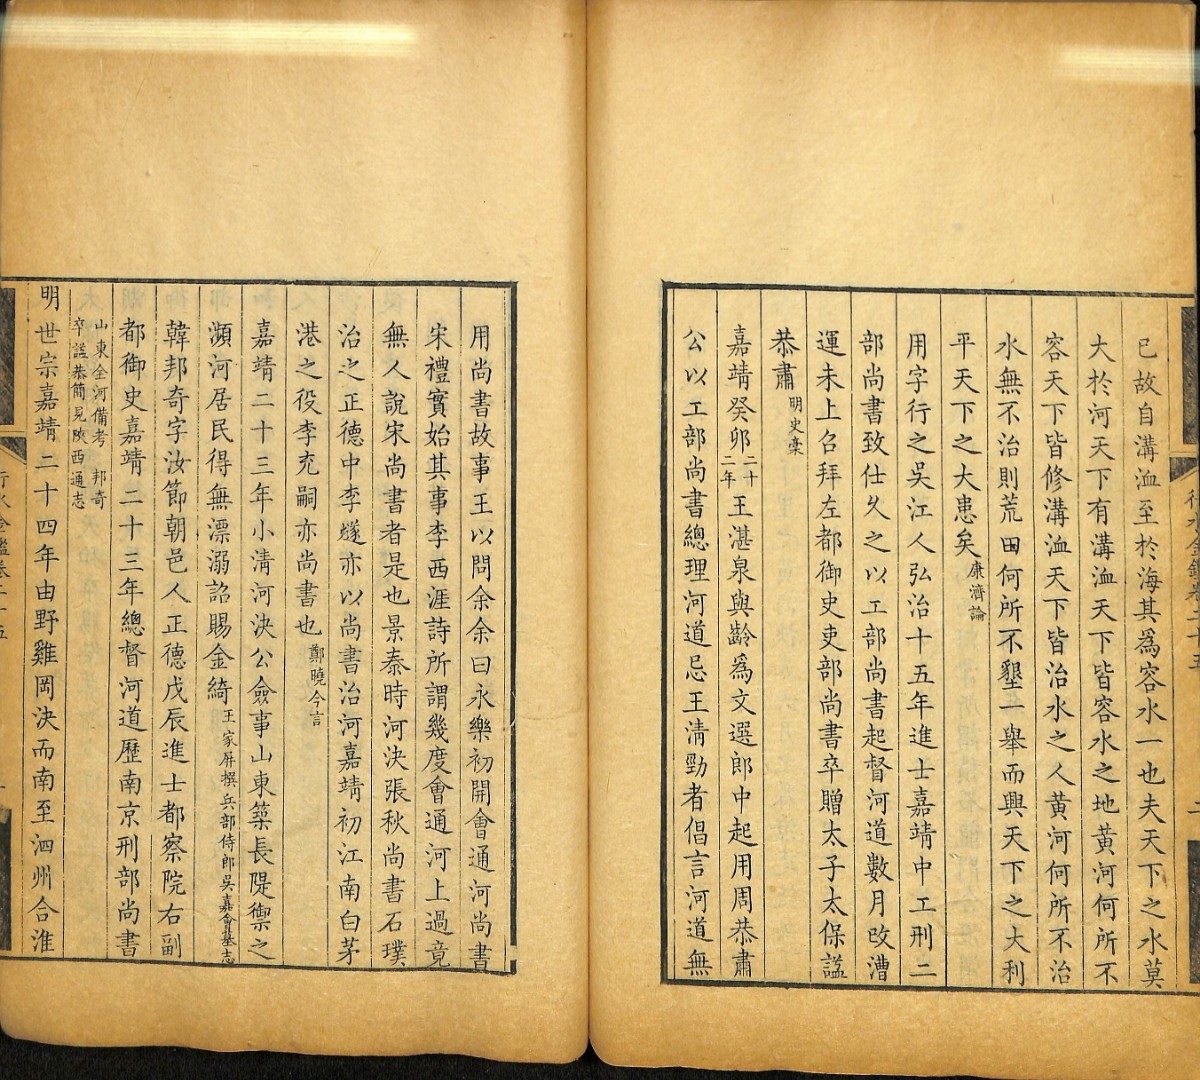 已故自溝洫至於海其爲容水一也夫天下之水莫
大於河天下有溝洫天下皆容水之地黄河何所不
容天下皆修溝洫天下皆治水之人黄河何所不治
水無不治則荒田何所不墾一舉而興天下之大利
平天下之大患矣康濟論
用字行之吳江人弘治十五年進士嘉靖中工刑二
部尚書致仕久之以工部尚書起督河道數月改漕
運未上召拜左都御史吏部尚書卒贈太子太保謚
恭肅明史稾
嘉靖癸卯二十二年王湛泉與齡爲文選郎中起用周恭肅
公以工部尚書總理河道忌王清勁者倡言河道無
用尚書故事王以問余余曰永樂初開會通河尚書
宋禮實始其事李西涯詩所謂幾度會通河上過竟
無人說宋尚書者是也景泰時河決張秋尚書石璞
治之正德中李鐩亦以尚書治河嘉靖初江南白茅
港之役李充嗣亦尚書也鄭曉今言
嘉靖二十三年小清河決公僉事山東築長隄禦之
瀕河居民得無漂溺詔賜金綺王家屏撰兵部侍郎吳嘉會墓志
韓邦奇字汝節朝邑人正德戊辰進士都察院右副
都御史嘉靖二十三年總督河道歷南京刑部尚書
山東全河備考　邦奇卒謚恭簡見陜西通志
明世宗嘉靖二十四年由野雞岡決而南至泗州合淮
行水金鑑卷二十五